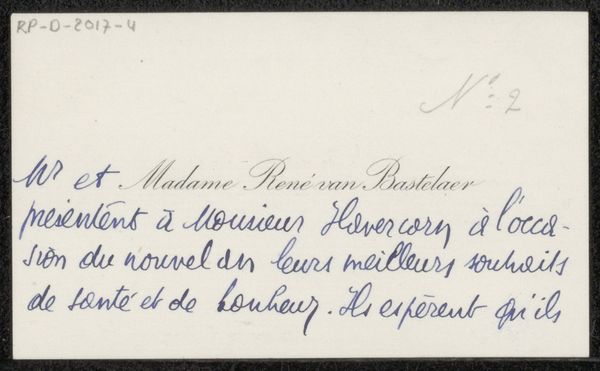 RP-D-2017-4
N°: 2
Mr et Madame René van Bastelaer
présentent à Monsieur Havercorn à l'occa-
sion du nouvel an leurs meilleurs souhaits
de santé et de bonheur. Ils espèrent qu'ils